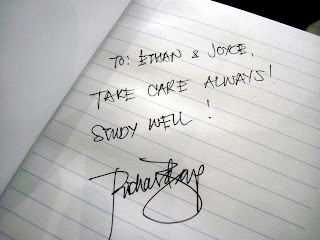 TO: ETHAN & JOYCE,
TAKE CARE ALWAYS!
STUDY WELL!